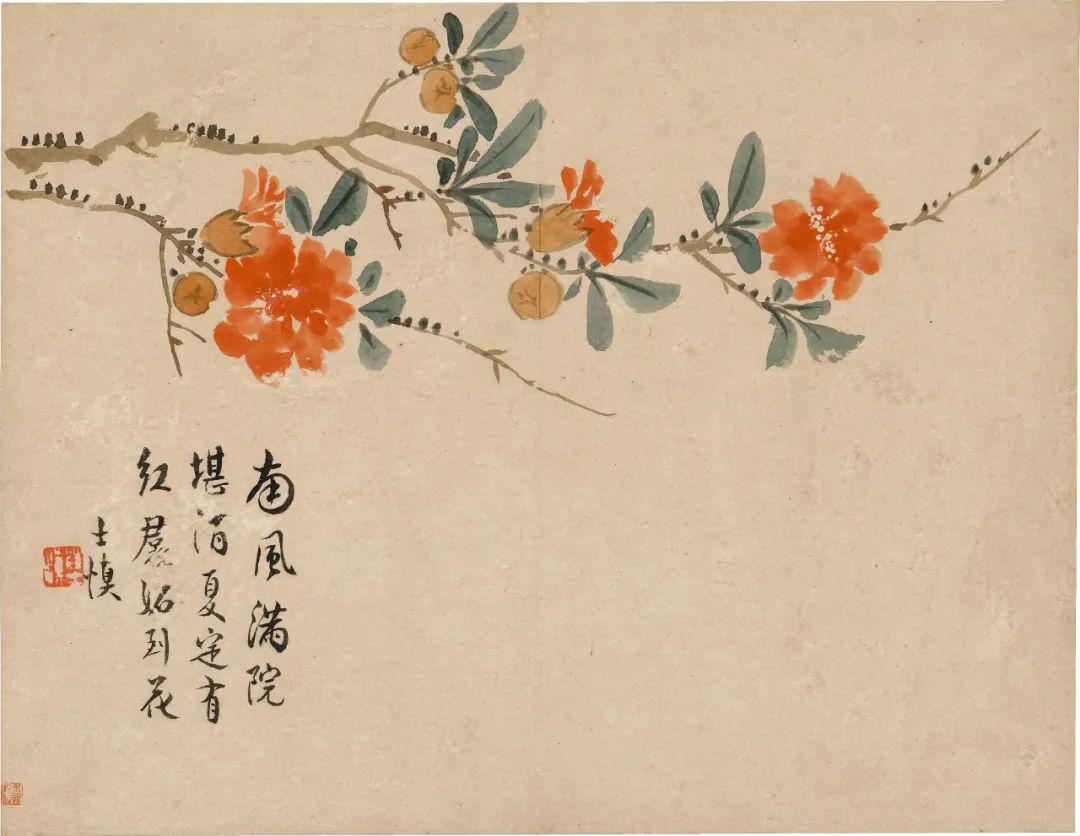 南風滿院
堪消夏定有
紅裠妬到花
士慎